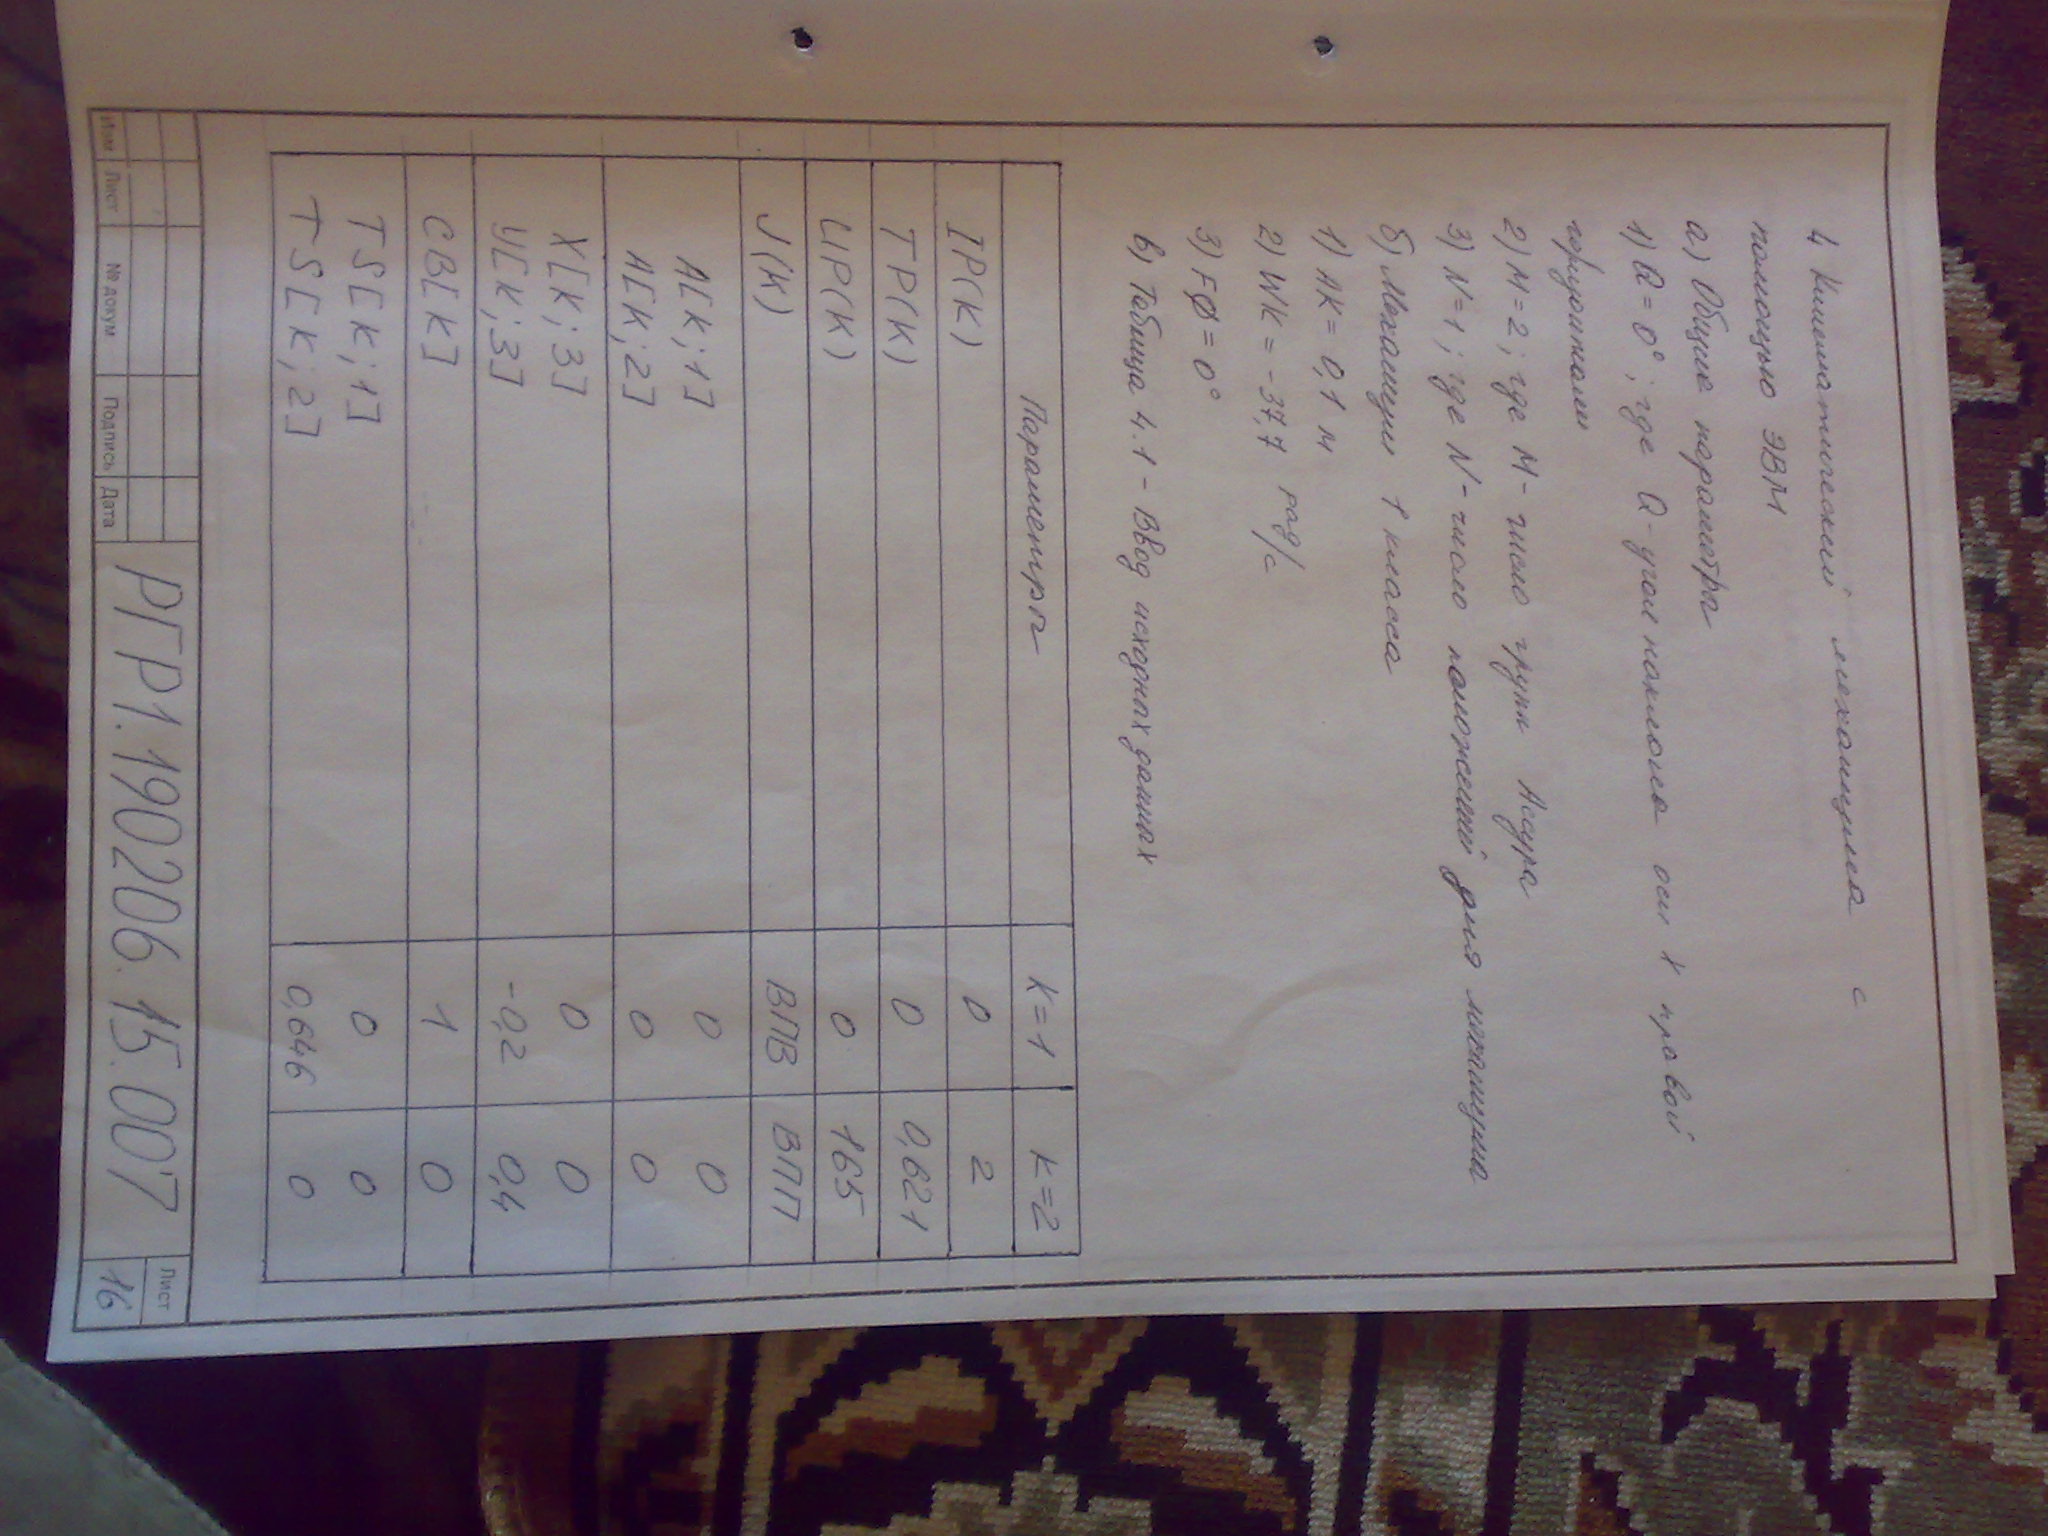 4 Кинематический механизма с
помощью ЭВМ
а) Общие параметры
1) Q = 0°; где Q - угол наклона оси x правой
горизонтали
2) M = 2; где M - число групп Ассура
3) N = 1; где N - число положений для механизма
б) Механизм 1 класса
1) AK = 0,1 м
2) WK = -37,7 рад/с
3) FØ = 0°
в) Таблица 4.1 - Ввод исходных данных
Параметры K=1 K=2
IP(K) 0 2
TP(K) 0 0,621
UP(K) 0 165
J(K) ВПВ ВПП
A[K;1] 0 0
A[K;2] 0 0
X[K;3] 0 0
Y[K;3] -0,2 0,4
CB[K] 1 0
TS[K;1] 0 0
TS[K;2] 0,646 0
Изм Лист № докум Подпись Дата
РГР1.190206.15.007
Лист
16